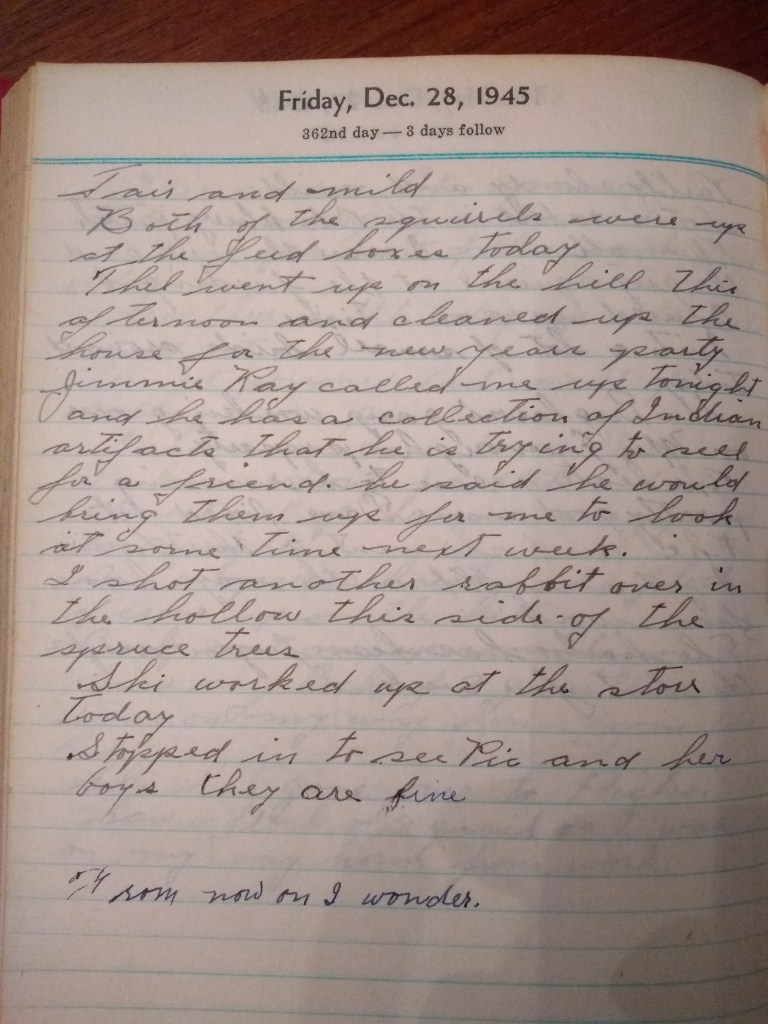 Friday, Dec. 28, 1945
362nd day — 3 days follow
Fair and mild
Both of the squirrels were up
at the feed boxes today
Thel went up on the hill this
afternoon and cleaned up the
house for the new years party
Jimmie Ray called me up tonight
and he has a collection of Indian
artifacts that he is trying to sell
for a friend. he said he would
bring them up for me to look
at some time next week.
I shot another rabbit over in
the hollow this side of the
spruce trees
Ski worked up at the store
today
Stopped in to see Pic and her
boys they are fine
From now on I wonder.